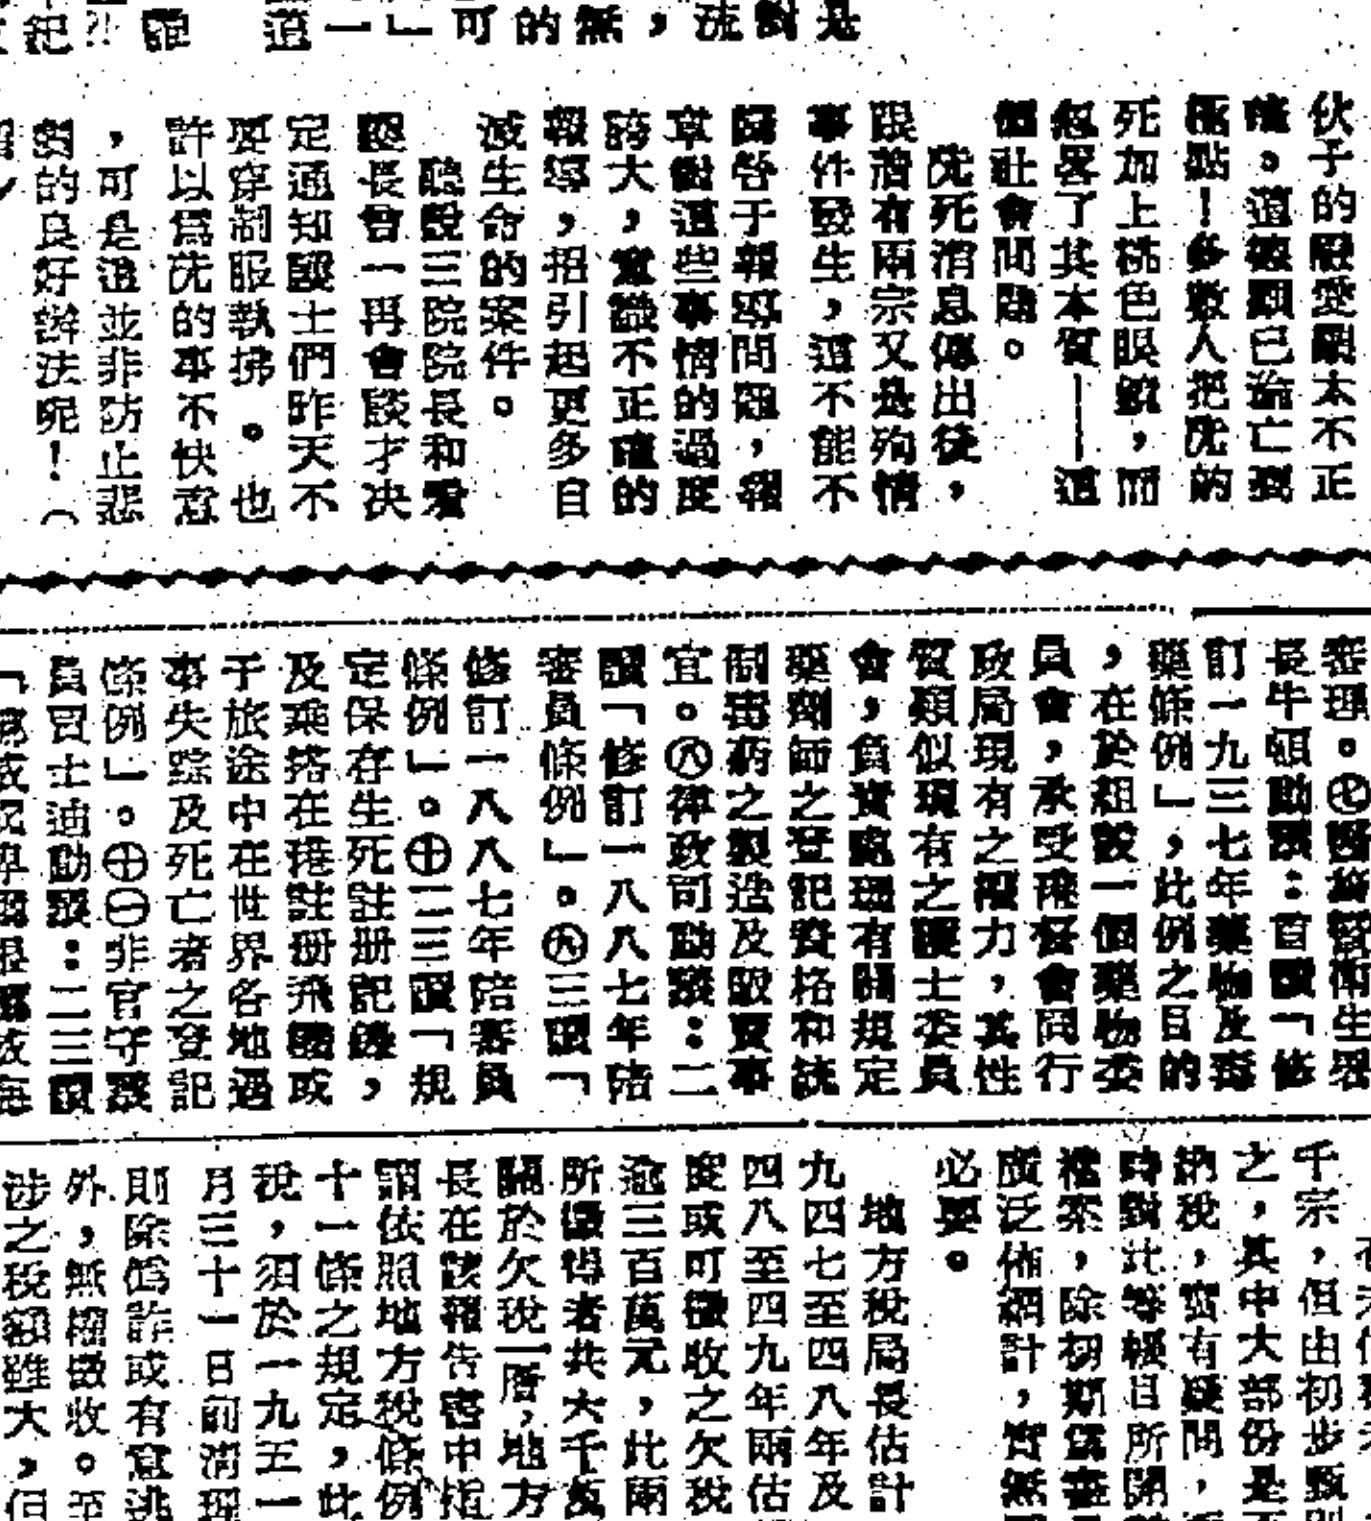 是討冼，無的可「一道
伙子的戀愛觀太不正
確。這種觀已流亡到
極點！多數人把冼的
死加上桃色眼鏡，而
忽畧了其本質——這
個社會問題。
冼死消息傳出後，
跟着有兩宗又是殉情
事件發生，這不能不
歸咎于報導問題，報
章對這些事情的過度
誇大，意識不正確的
報導，招引起更多自
滅生命的案件。
聽說三院院長和看
護長曾一再會談才决
定通知護士們昨天不
要穿制服執拂。也
許以爲冼的事不快意
，可是這並非防止悲
劇的良好辦法呢！（
審理。㊆醫務暨衛生署
長牛頓動議：首讀「修
訂一九三七年藥物及毒
藥條例」，此例之目的
，在於組設一個藥物委
員會，承受潔淨會同行
政局現有之權力，其性
質類似現有之護士委員
會，負責處理有關規定
藥劑師之登記資格和統
制毒葯之製造及販賣事
宜。㊇律政司動議：二
讀「修訂一八八七年陪
審員條例」。㊈三讀「
修訂一八八七年陪審員
條例」。㊉二三讀「規
定保存生死註册記錄，
及乘搭在港註册飛機或
于旅途中在世界各地遇
事失踪及死亡者之登記
條例」。㊉㊀非官守議
員買士迪動議：二三讀
千宗，但由初步甄別
之，其中大部份是否
納稅，實有疑問，
時對此等賬目所開
檔案，除初期審查
廣泛佈網計，實無
必要。
地方稅局長估計
九四七至四八年及
四八至四九年兩估
度或可徵收之欠稅
逾三百萬元，此兩
所徵得者共六千萬
關於欠稅一層，地方
長在該報告書中指
謂依照地方稅條例
十一條之規定，此
稅，須於一九五一
月三十一日前清理
則除僞詐或有意逃
外，無權徵收。至
涉之稅額雖大，但